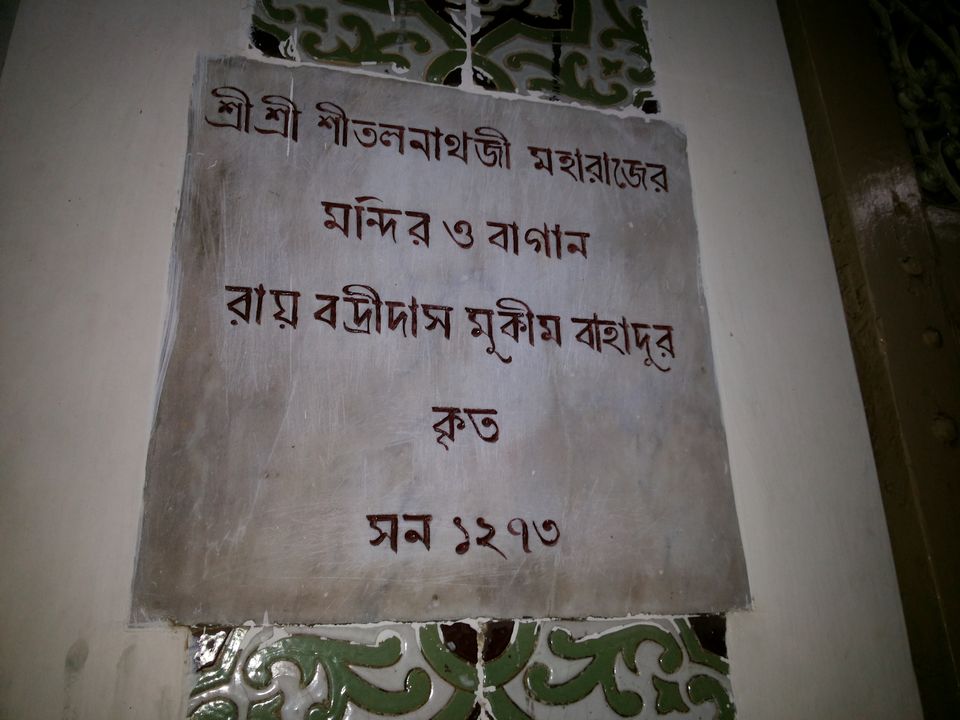 শ্রীশ্রী শীতলনাথজী মহারাজের
মন্দির ও বাগান
রায় বদ্রীদাস মূকীম বাহাদূর
কৃত
সন ১২৭৩